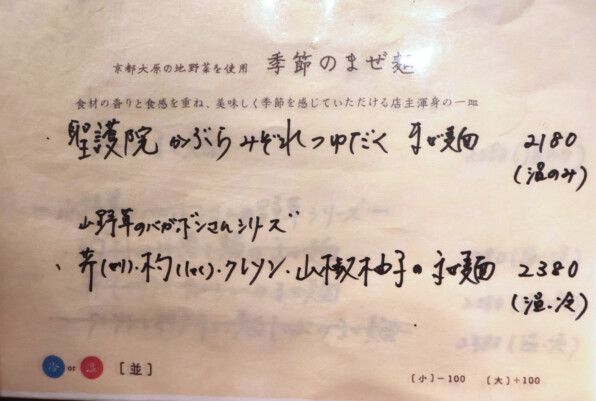 京都大原の地野菜を使用 季節のまぜ麺
食材の香りと食感を重ね、美味しく季節を感じていただける店主渾身の一皿
・聖護院かぶらみぞれつゆだく まぜ麺 2180
(温のみ)
山野草のバガボンさんシリーズ
・芹(せり)・杓(しゃく)・クレソン・山椒柚子のまぜ麺 2380
(温・冷)
冷 or 温 [並] [小]−100 [大]+100